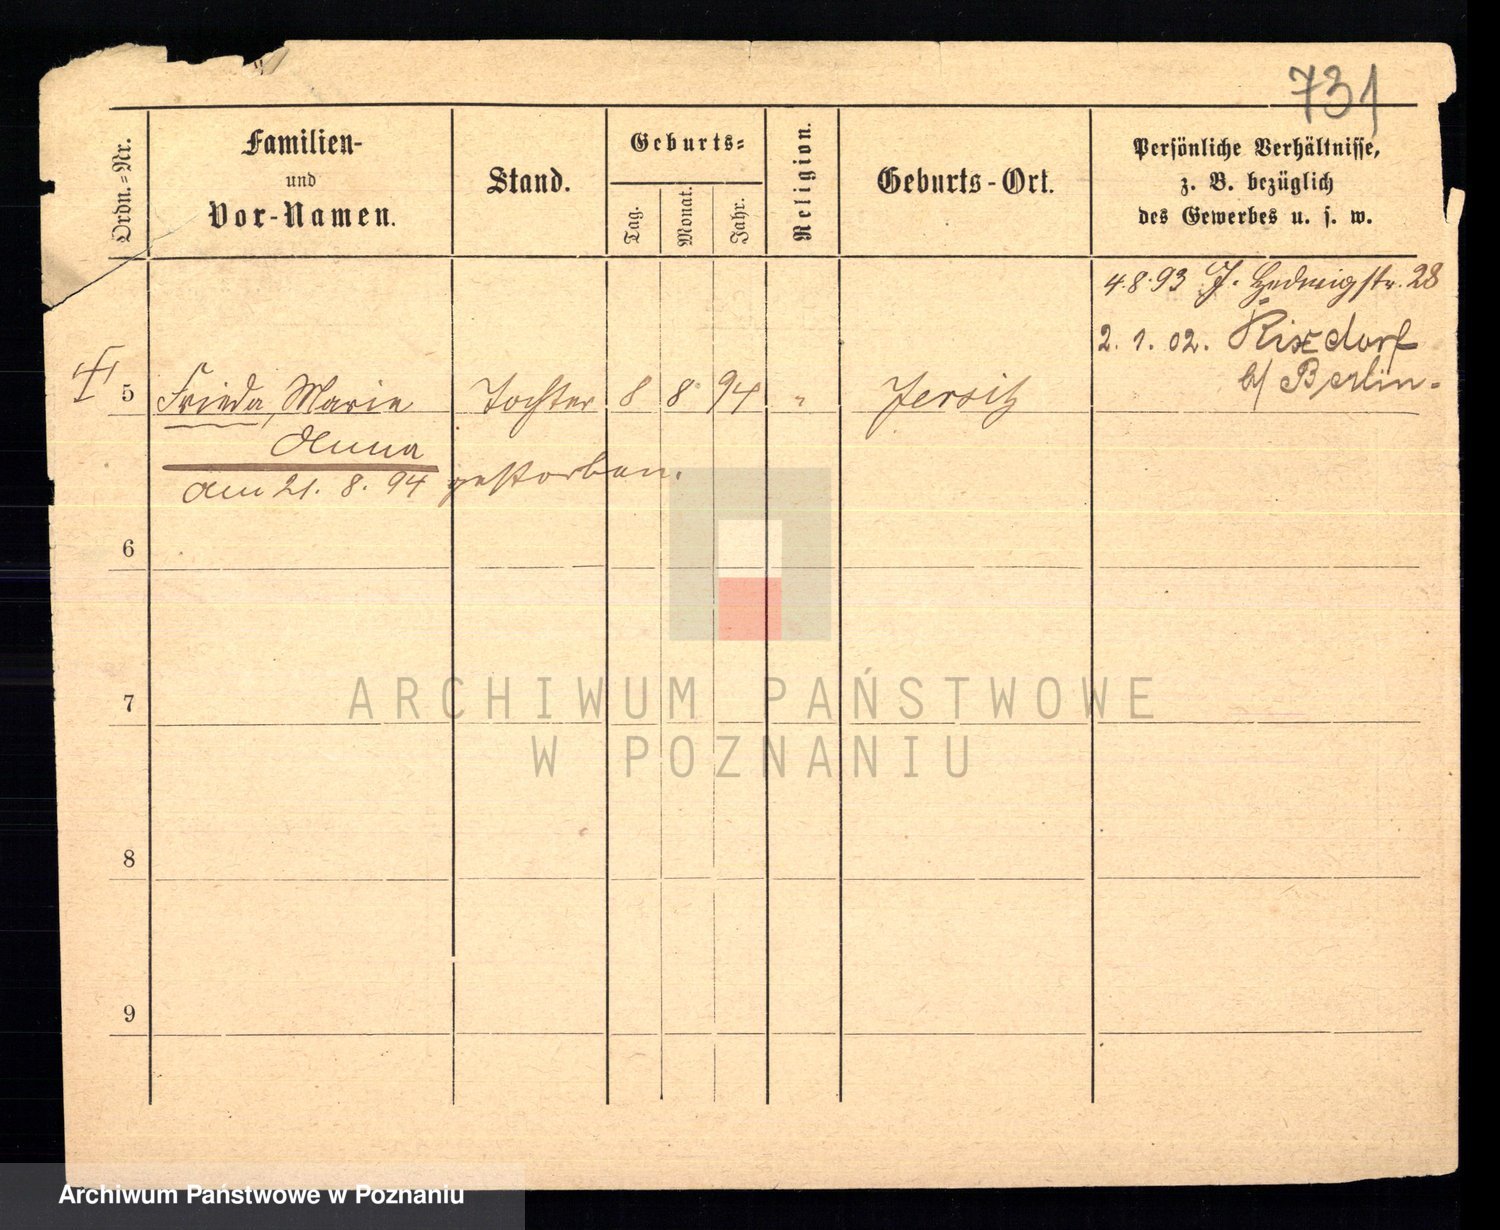 731
Ordn.-Nr.
Familien-
und
Vor-Namen.
Stand.
Geburts-
Tag.
Monat.
Jahr.
Religion.
Geburts-Ort.
Persönliche Verhältnisse,
z. B. bezüglich
des Gewerbes u. s. w.
4.8.93 J. Hedwigstr. 28
2. 1. 02. Rixdorf
b/ Berlin.
5 Frieda, Marie Tochter 8 8 94 " Jersitz
Anna
am 21. 8. 94 gestorben.
6
7
8
9
ARCHIWUM PAŃSTWOWE
W POZNANIU
Archiwum Państwowe w Poznaniu